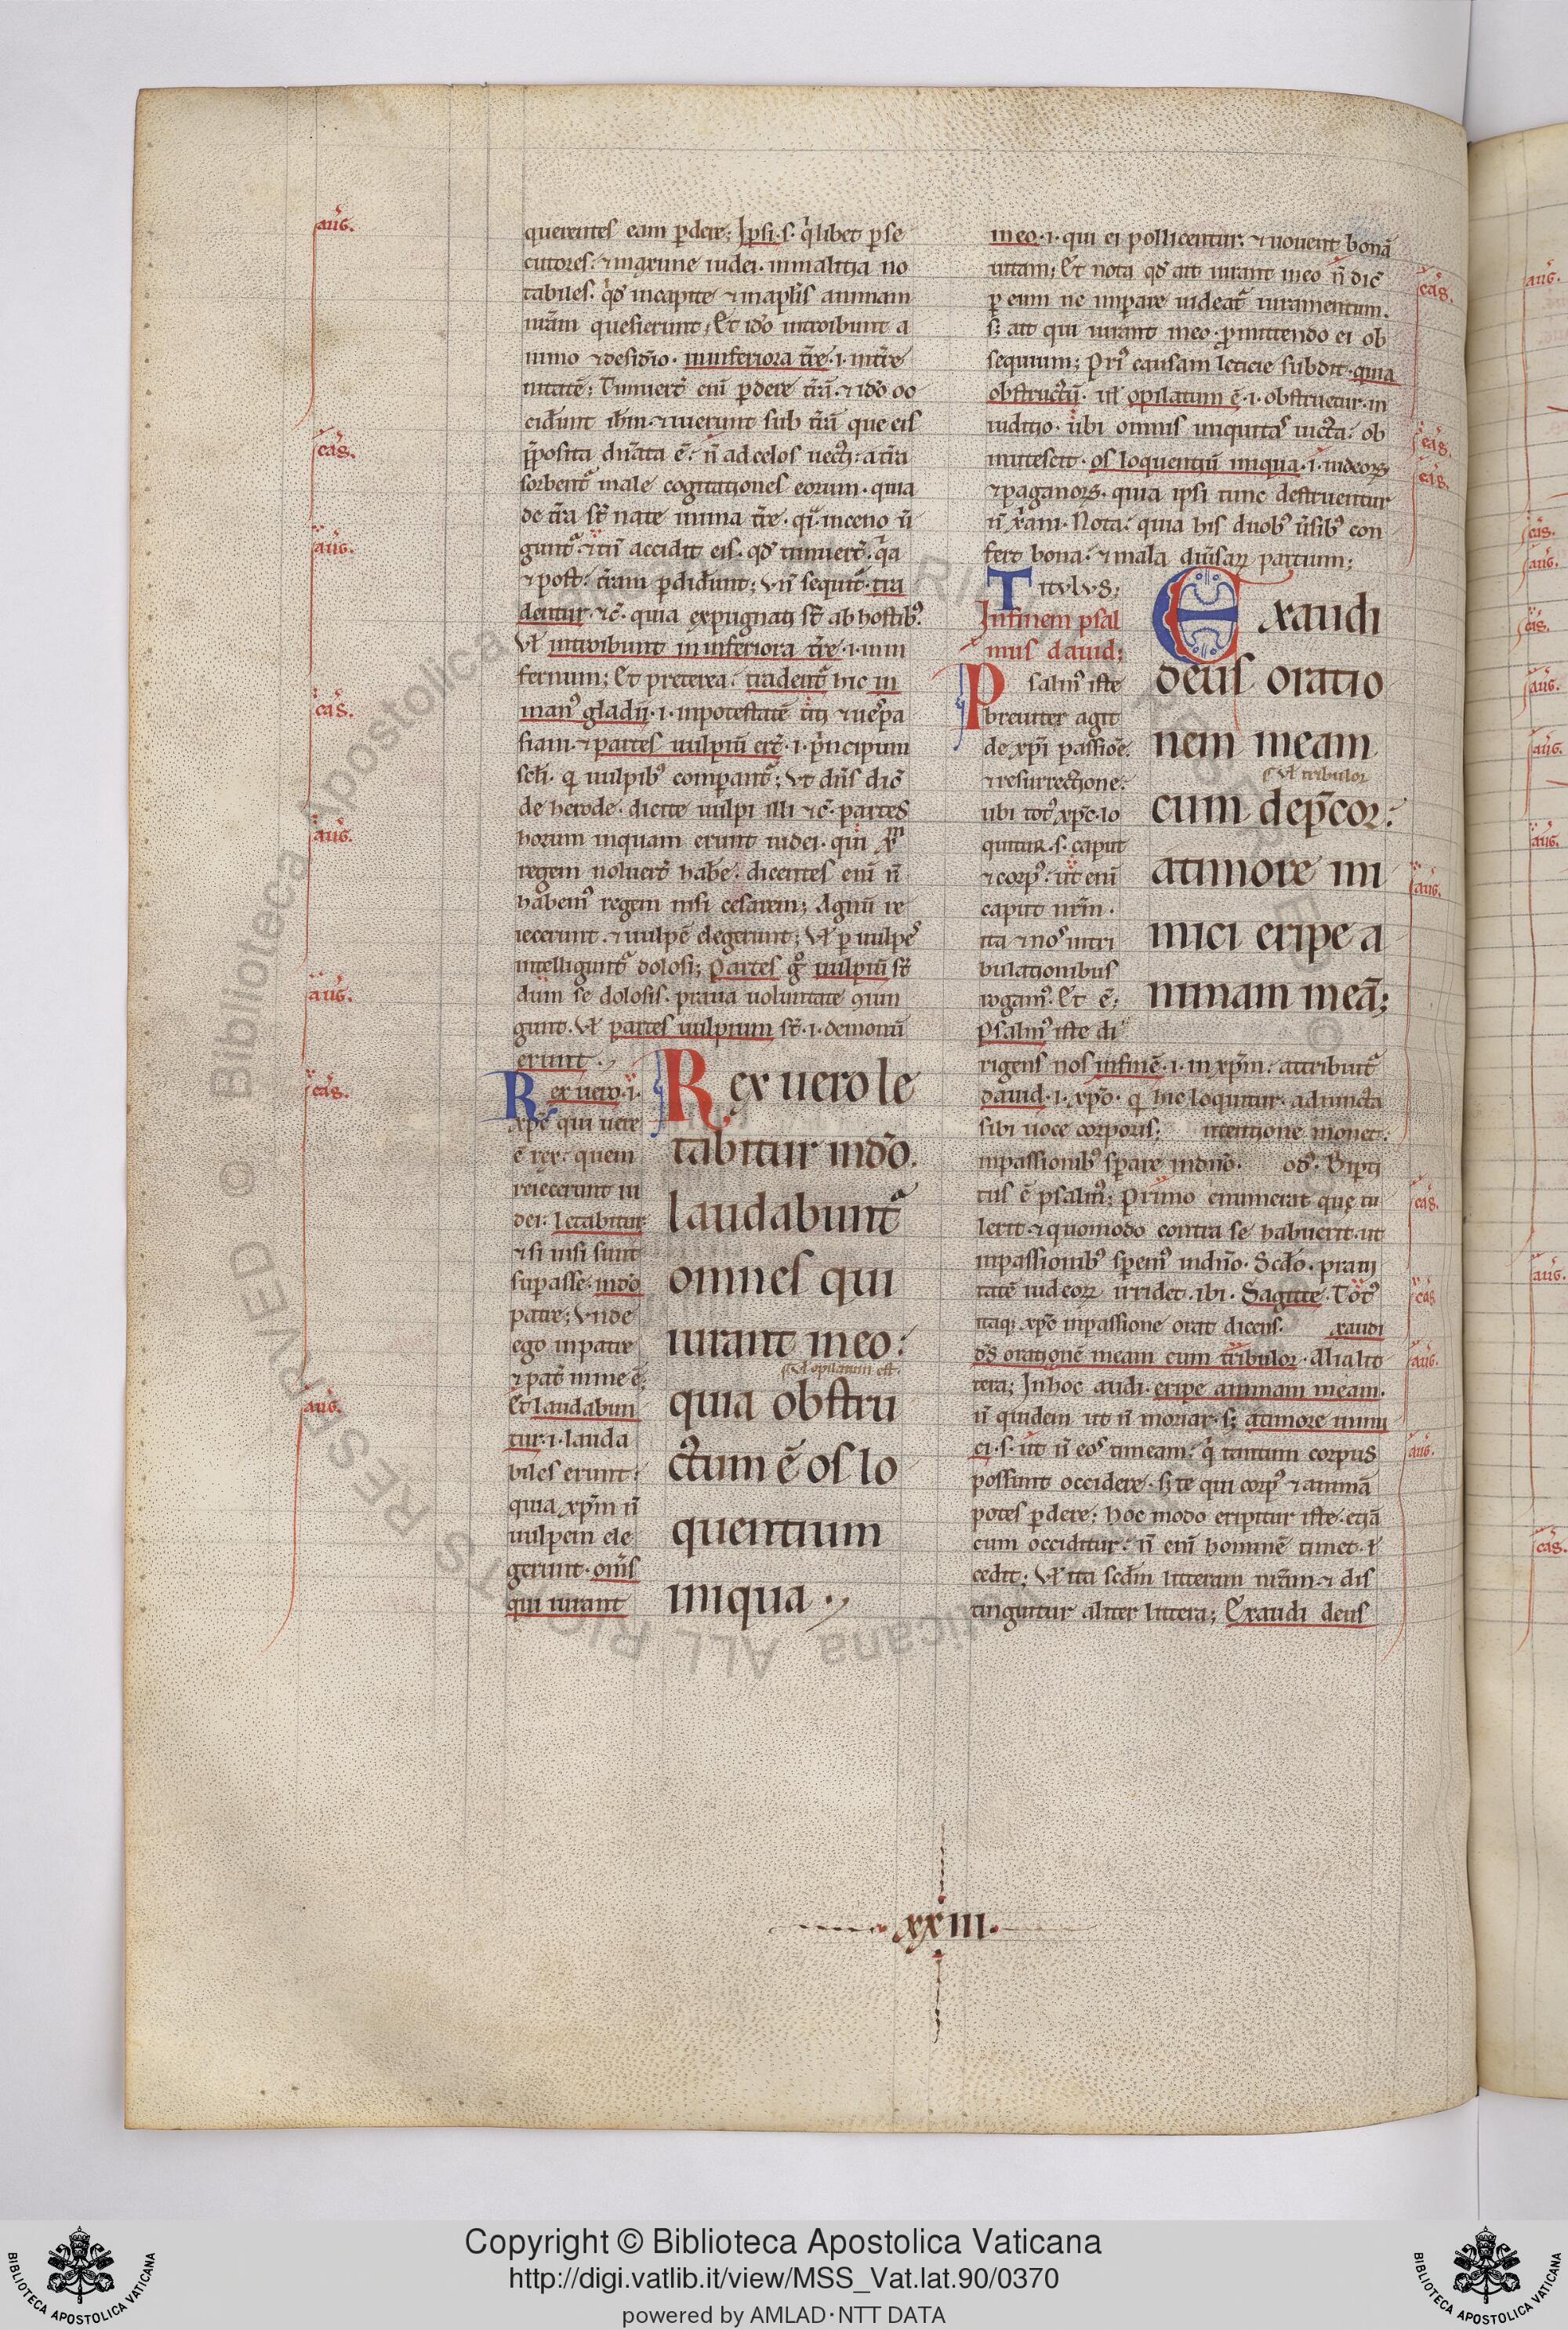 querentes eam ꝑdere; Ipsi .s. q̉libet ꝑse
cutores. ⁊ maxime iudei. in malitia no
tabiles. q̉d in capite ⁊ in aplis animam
nr̃am quesierunt; Et ido introibunt a
nimo ⁊ desid̃io. in inferiora tr̃e .i. in tr̃e
nitatẽ; Timuer̃t enĩ ꝑdere tr̃ã. ⁊ ido oc
cider̃unt ihm. ⁊ ierunt sub tr̃ã que eis
p̃posita dr̃ata ẽ. ñ ad celos uecti. a tr̃a
sorbent᷑ male cogitationes eorum. quia
de tr̃a st̃ nate
gunt᷑. ⁊ tñ accidit eis. qd timuer̃t. q̉a
⁊ post. tr̃am ꝑdider̃unt; Vñ sequit᷑. tra
dentur. ⁊c̃. quia expugnati st̃ ab hostib᷒.
Vl̃ introibunt in inferiora tr̃e .i. in in
fernum; Et preterea. tradent᷑ hic in
man᷒ gladii .i. in potestatẽ titi ⁊ uespa
siani. ⁊ partes uulpiũ er̃t .i. p̉ncipum
scl̃i. q̉ uulpib᷒ comparant᷑; Vt dñs dic̃
de herode. dicite uulpi illi ⁊c̃. partes
horum inquam erunt iudei. qui xp̃m
regem noluer̃t hab̃e. dicentes enĩ ñ
habem᷒ regem nisi cesarem; Agnũ re
iecerunt. ⁊ uulpẽ elegerunt; Vl̃ ꝑ uulpes
intelligunt᷑ dolosi; Partes g̊ uulpiũ st̃
dum se dolosis. praua uoluntate ꝯiun
gunt. Vl̃ partes uulpium st̃ .i. demonũ
erunt.
Rex uero .i.
xp̃c qui uere
ẽ rex. quem
reiecerunt iu
dei. letabitur
⁊ si uisi sunt
supasse. in dõ
patre; Vnde
ego in patre
⁊ pat̃ in me ẽ;
Et laudabun
tur .i. lauda
biles erunt.
quia xp̃m ñ
uulpem ele
gerunt. om̃s
qui iurant
Rex uero le
tabitur in dõ.
laudabunt᷑
omnes qui
iurant meo.
ł opilatum est.
quia obstru
ctum ẽ os lo
quentium
iniqua.
meo .i. qui ei pollicentur. ⁊ uouent bonã
uitam; Et nota qd ait iurant meo ñ dic̃
ꝑ eum ne impare uideat᷑ iuramentum.
s; ait qui iurant meo. ꝓmittendo ei ob
sequium; Pri᷒ causam leticie subdit. quia
obstructũ. ul̃ opilatum ẽ .i. obstruetur. in
iuditio. ubi omnis iniquitas uicta. ob
mutescit. os loquentiũ iniqua .i. iudeoꝝ
⁊ paganoꝝ. quia ipsi tunc destruentur
Nota. quia his duob᷒ ũsib᷒ con
fert bona. ⁊ mala diũsaꝝ partium;
Titvlvs;
In finem psal
mus dauid;
Psalm᷒ iste
breuiter agit
de xp̃i passiõe.
⁊ resurrectione.
ubi tot᷒ xp̃c. lo
quitur .s. caput
⁊ corp᷒. ut enĩ
caput nr̃m.
ita ⁊ nos in tri
bulationibus
rogam᷒. Et ẽ;
Psalm᷒ iste di
Exaudi
deus oratio
nem meam
ł tribulor
cum dep̃cor.
a timore ini
mici eripe a
nimam meã;
rigens nos in finẽ .i. in xp̃m. attribuit᷑
dauid .i. xp̃o. q̉ hic loquitur. adiuncta
sibi uoce corporis; intentione monet.
in passionib᷒ sp̃are in dño. od᷒. Biꝑti
tus ẽ psalm᷒; Primo enumerat que tu
lerit. ⁊ quomodo contra se habuerit. ut
in passionib᷒ sp̃em᷒ in dño. Scdo. praui
tatẽ iudeoꝝ irridet. ibi. Sagitte. Tot᷒
itaq; xp̃c in passione orat dicens. exaudi
ds̃ orationẽ meam cum tribulor. Alia lit
tera; In hoc audi. eripe animam meam.
ñ quidem ut ñ moriar. s; a timore inimi
ci .s. ut ñ eos timeam. q̉ tantum corpus
possunt occidere. s; te qui corp᷒ ⁊ animã
potes ꝑdere; hoc modo eripitur iste. etiã
cum occiditur. ñ enĩ hominẽ timet. ł
cedit; Vl̃ ita scdm litteram nr̃am. ⁊ dis
tinguitur aliter littera; Exaudi deus
aug̃.
cas̃.
aug̃.
cas̃.
aug̃.
aug̃.
cas̃.
aug̃.
cas̃.
cas̃.
cas̃.
aug̃.
cas̃.
cas̃
aug̃.
aug̃.
xxiii.
aug̃.
cas̃.
aug̃.
cas̃.
aug̃.
aug̃.
aug̃.
aug̃.
cas̃.
Biblioteca Apostolica Vaticana ALL RIGHTS RESERVED ©
Copyright © Biblioteca Apostolica Vaticana
http://digi.vatlib.it/view/MSS_Vat.lat.90/0370
powered by AMLAD·NTT DATA
BIBLIOTECA APOSTOLICA VATICANA
BIBLIOTECA APOSTOLICA VATICANA